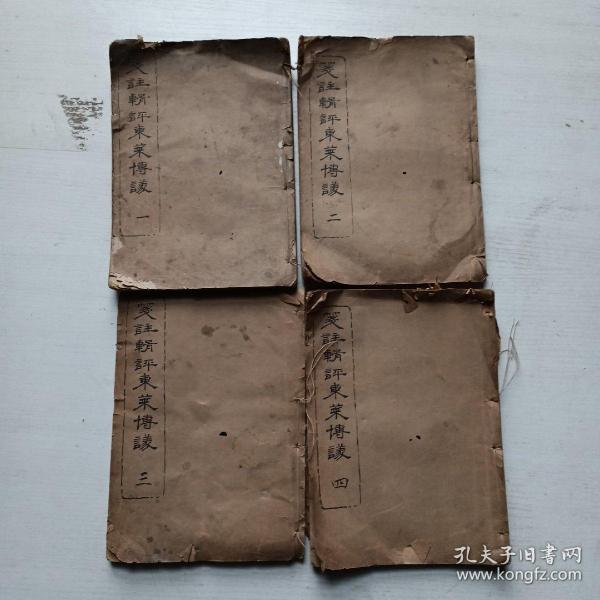 箋註輯評東萊博議 一
箋註輯評東萊博議 二
箋註輯評東萊博議 三
箋註輯評東萊博議 四
孔夫子旧书网
www.kongfz.com